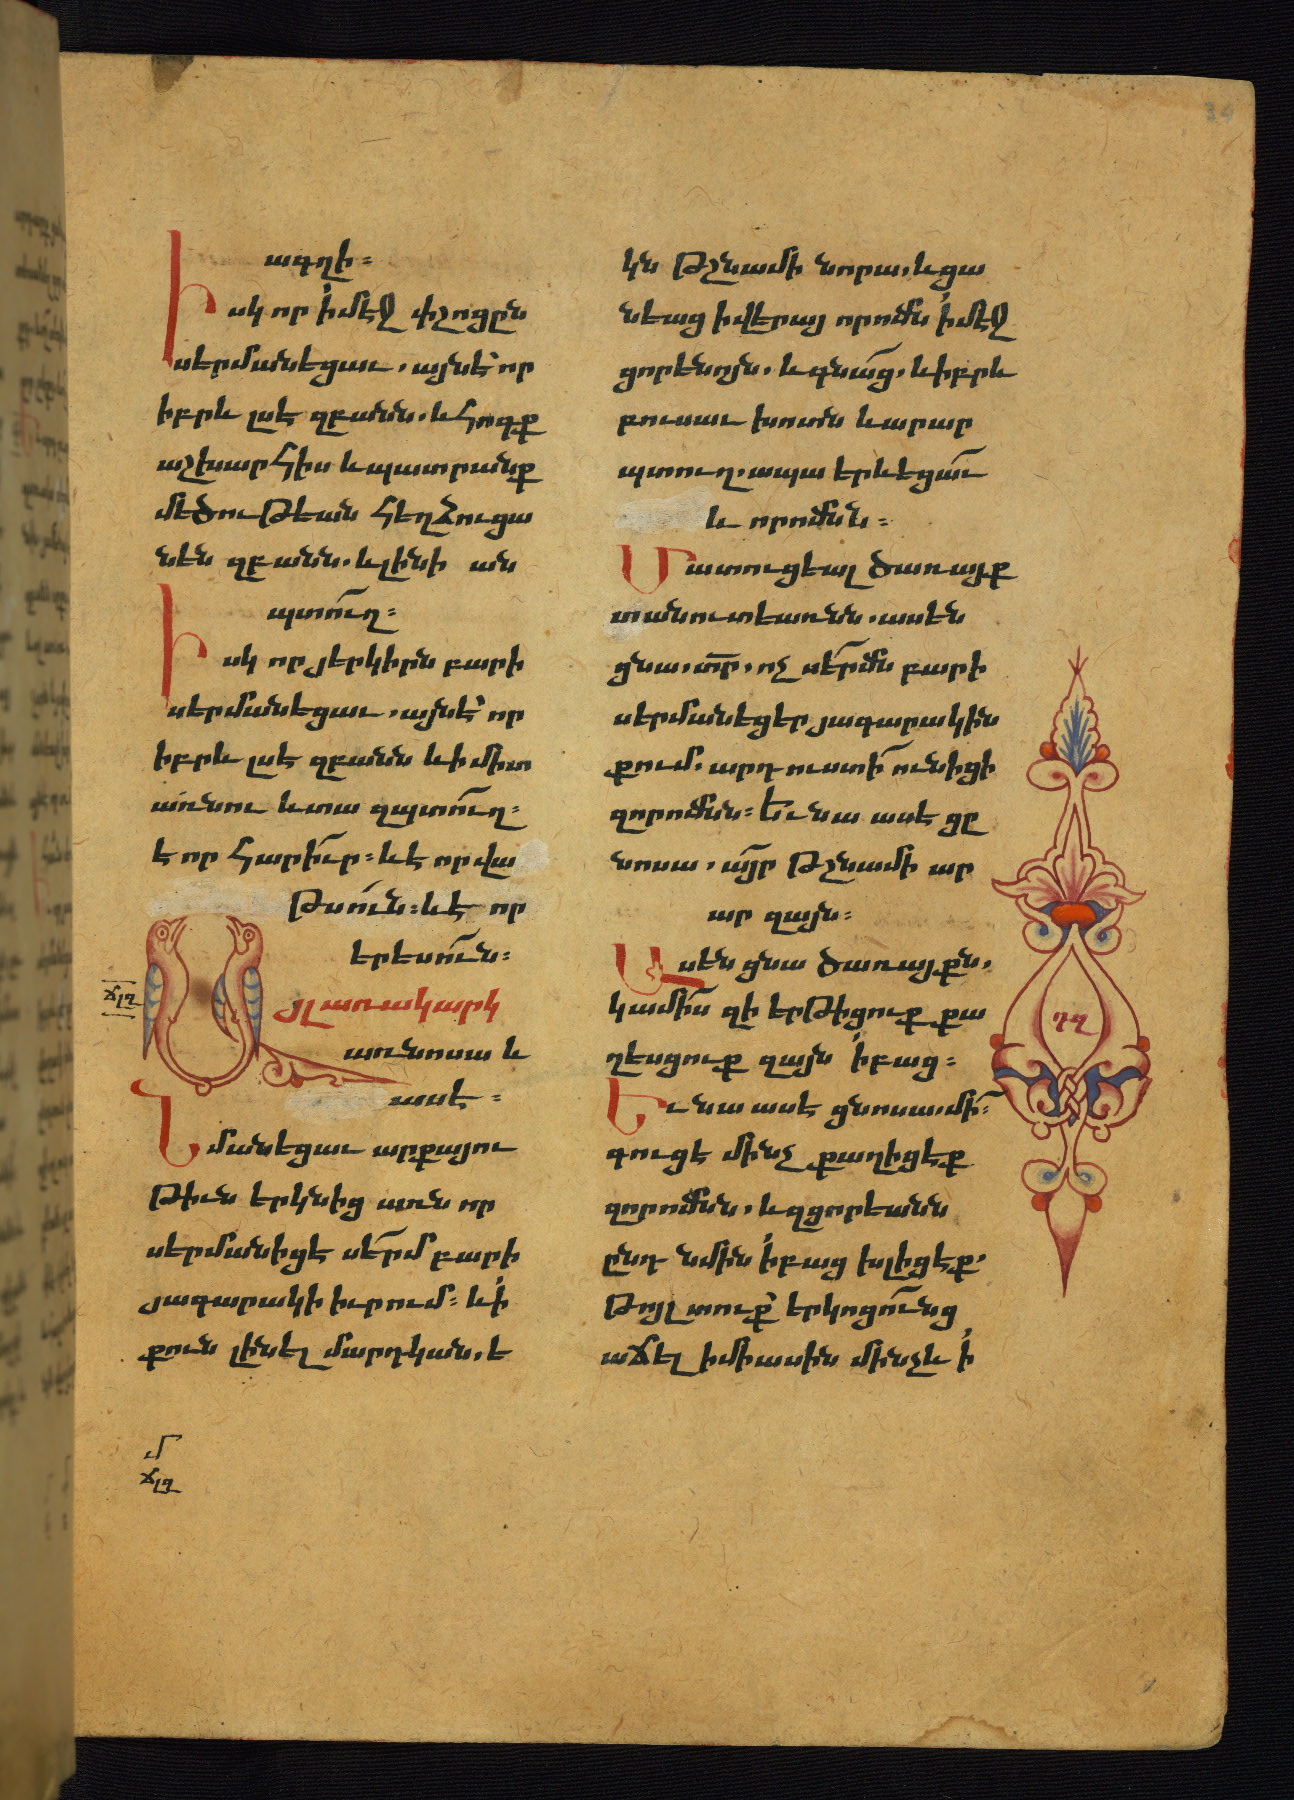 34
ագղի։
Իսկ որ ՛ի մէջ փշոցըն
սերմանեցաւ. այնէ՝ որ
իբրև լսէ զբանն. և հոգք
աշխարհիս և պատրանք
մեծութեան հեղձուցա
նեն զբանն. և լինի ան
պտուղ։
Իսկ որ յերկիրն բարի
սերմանեցաւ. այնէ՝ որ
իբրև լսէ զբանն և ի միտ
առնու և տա զպտուղ։
է որ հարիւր։ և է որ վա
թսուն։ և է որ
երեսուն։
Այլ առակ արկ
առ նոսա և
ասէ։
ՃԼԶ
Նմանեցաւ արքայու
թիւն երկնից առն որ
սերմանիցէ սերմ բարի
յագարակի իւրում։ և ՛ի
քուն լինել մարդկան. ե
Մ
ՃԼԶ
կն թշնամի նորա. և ցա
նեաց ի վերայ որոմն ՛ի մէջ
ցորենոյն. և գնաց. և իբրև
բուսաւ խոտն և արար
պտուղ. ապա երևեցաւ
և որոմնն։
Մատուցեալ ծառայք
տանուտեառնն. ասեն
ցնա. տր. ոչ սերմն բարի
սերմանեցեր յագարակին
քում. արդ ուստի՞ ունիցի
զորոմնն։ Եւ նա ասէ ցը
նոսա. այր թշնամի ար
ար զայն։
Ասեն ցնա ծառայքն.
կամի՞ս զի երթիցուք քա
ղեսցուք զայն ՛ի բաց։
Եւ նա ասէ ցնոսա. մի՛
գուցէ մինչ քաղիցէք
զորոմնն. և զցորեանն
ընդ նմին ՛ի բաց խլիցէք.
Թոյլ տուք երկոցունց
աճել ի միասին մինչև ՛ի
ԴՂ